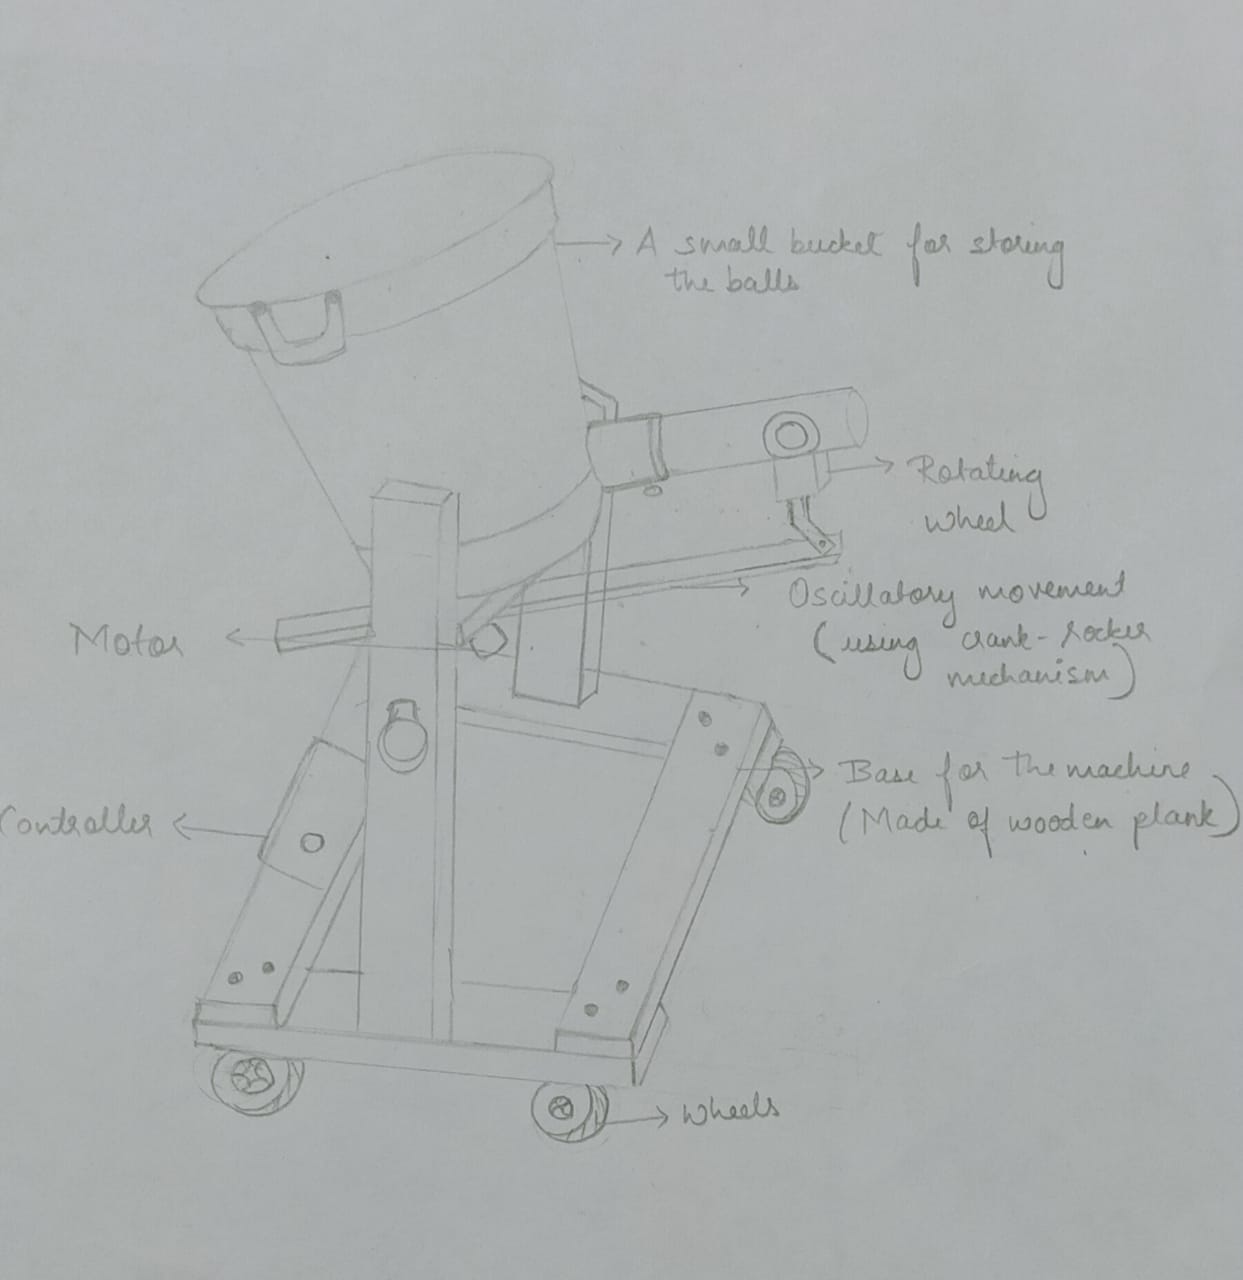 A small bucket for storing
the balls
Rotating
wheel
Oscillatory movement
(using crank-rocker
mechanism)
Motor
Base for the machine
(Made of wooden plank)
Controller
Wheels